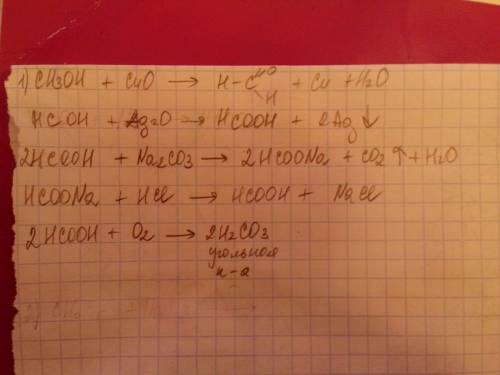 1) CH3OH + CuO → H-C=O + Cu + H2O
H
HCOH + Ag2O → HCOOH + 2Ag↓
2HCOOH + Na2CO3 → 2HCOONa + CO2↑ + H2O
HCOONa + HCl → HCOOH + NaCl
2HCOOH + O2 → 2H2CO3
угольная
к-а